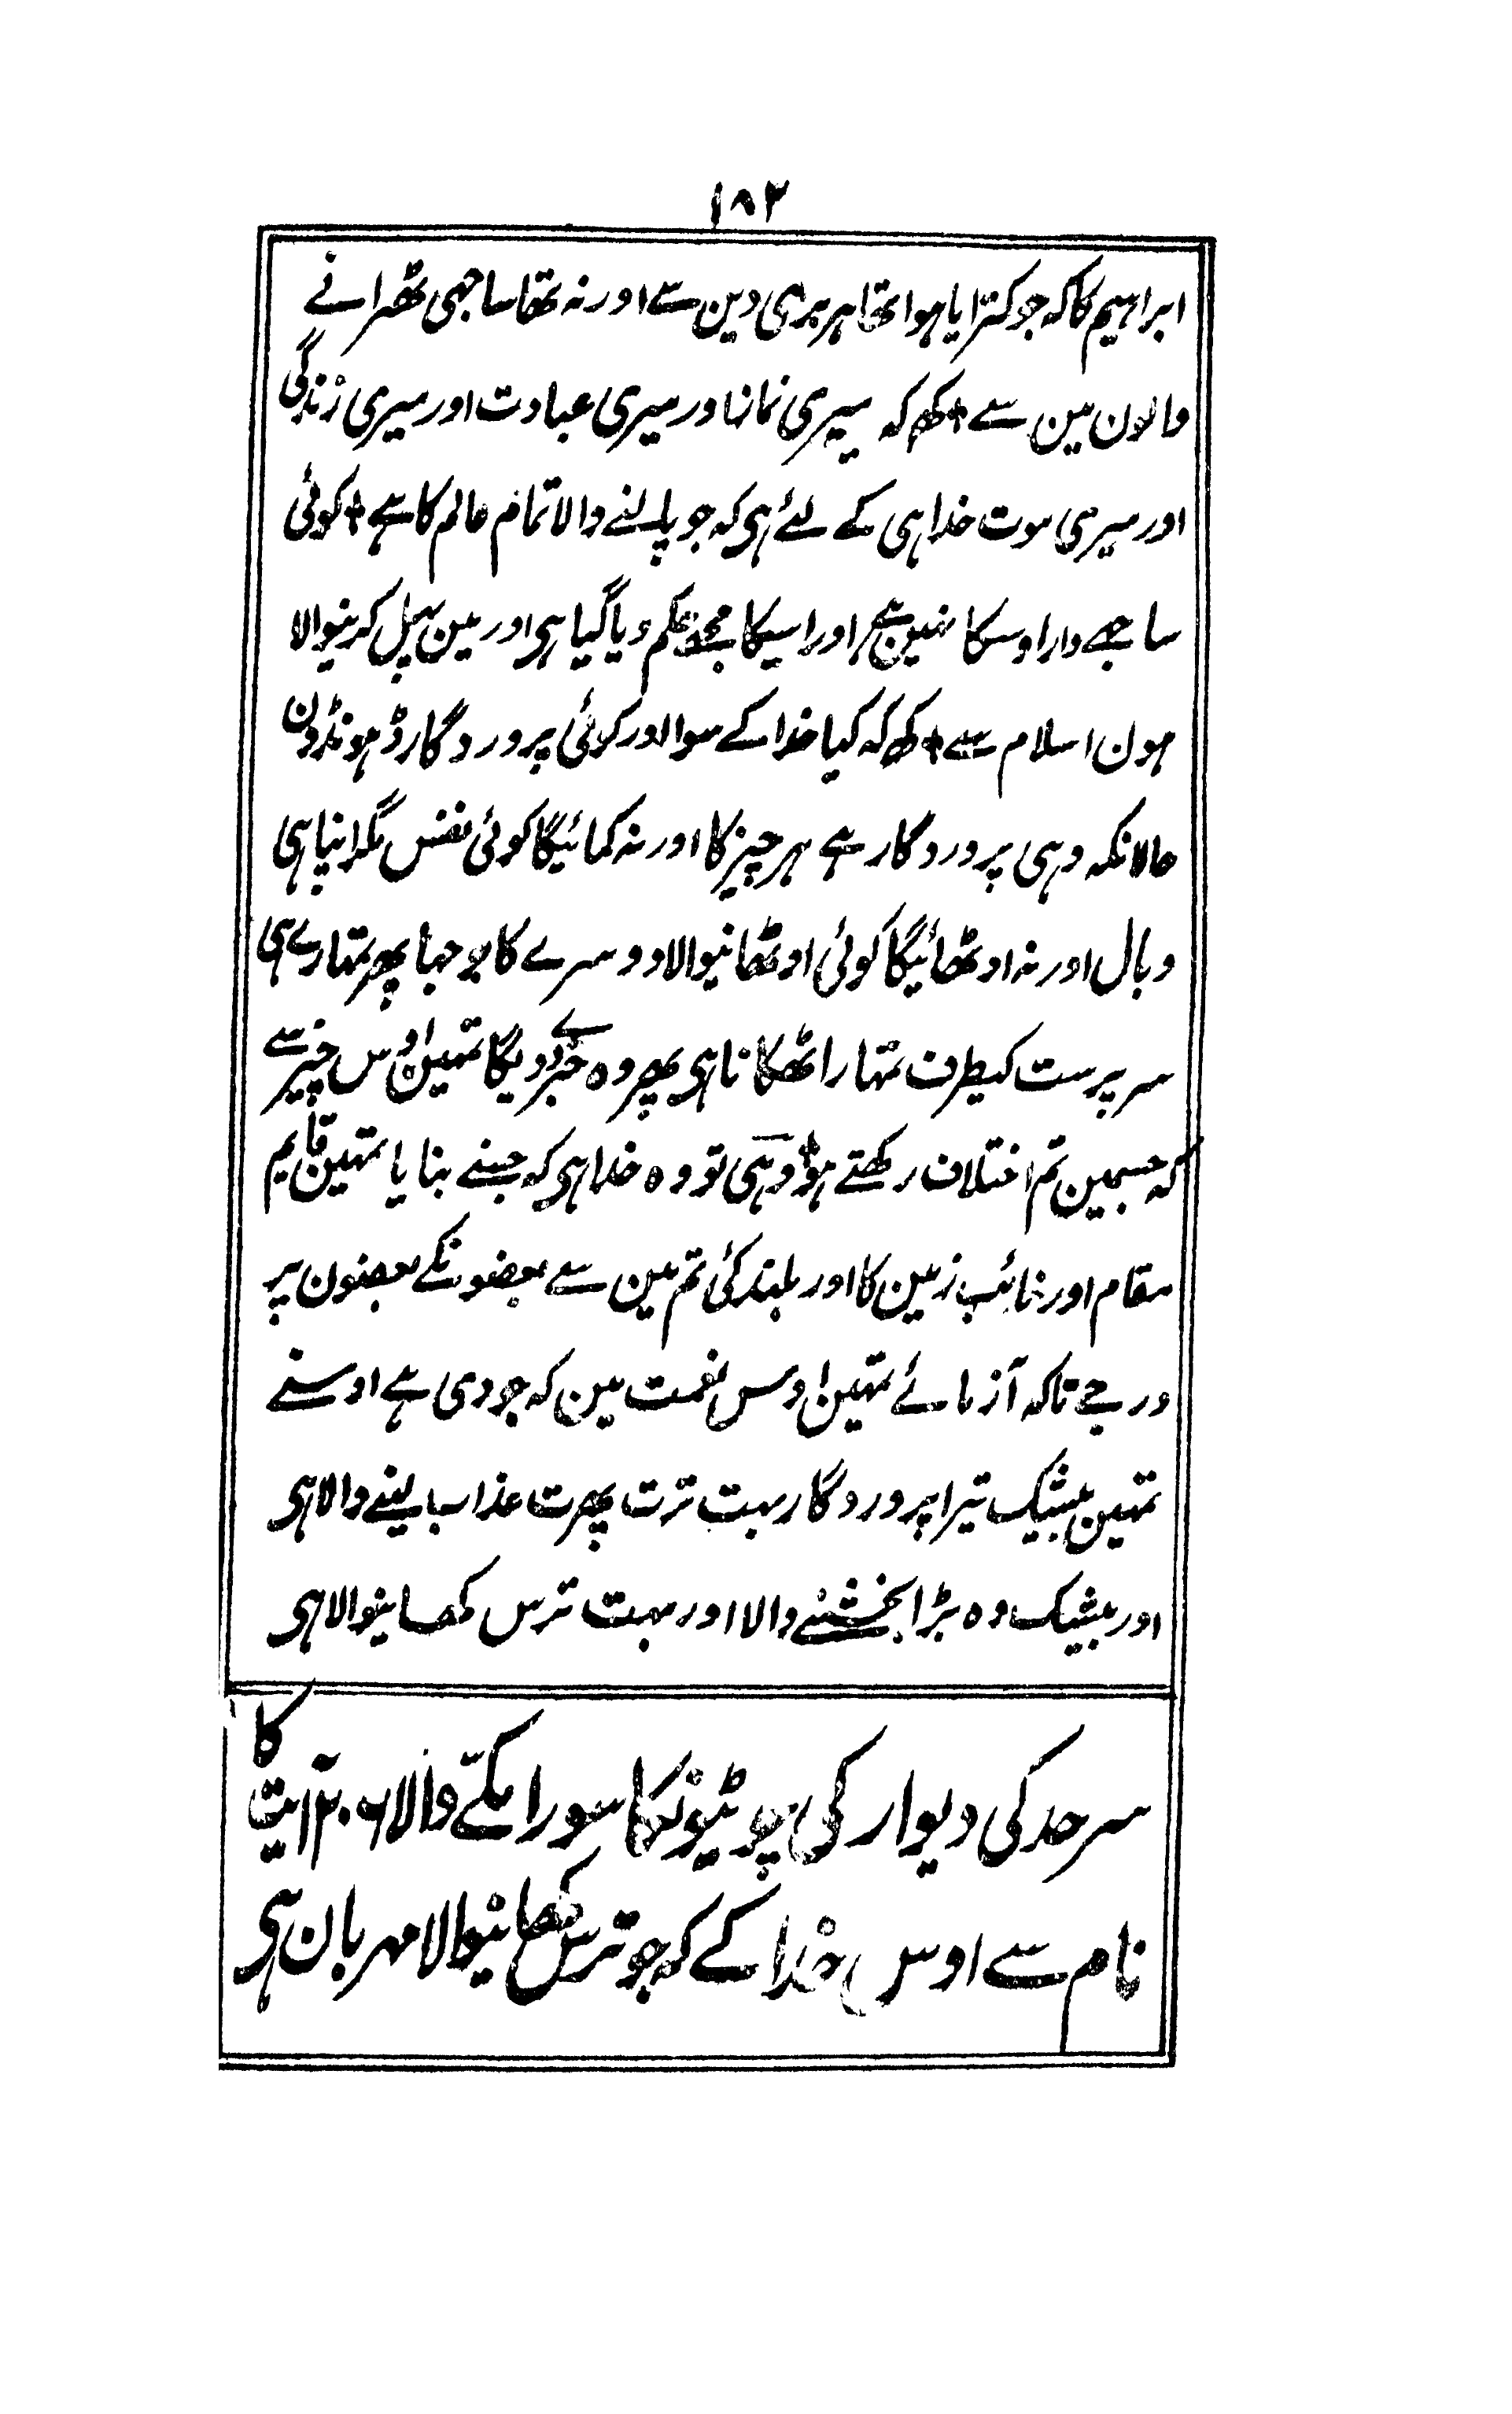 ۱۸۲
ابراہیم کا کہ جو کترایا ہوا تھا ہر بری دین سے اور نہ تھا ساجہی ٹھرانے
والون مین سے + کھ کہ میری نماز اور میری عبادت اور میری زندگی
اور میری موت خدا ہی کے لئے ہی کہ جو پالنے والا تمام عالم کا ہے + کوئی
ساجھے دار اوسکا نہین ہے اور اسیکا مجھے حکم دیا گیا ہی اور مین پہل کرنیوالا
ہون اسلام سے + کھ کہ کیا خدا کے سوا اور کوئی پروردگار ڈہونڈون
حالانکہ وہی پروردگار ہے ہر چیز کا اور نہ کمائیگا کوئی نفس مگر اپنا ہی
وبال اور نہ اوٹھائیگا کوئی اوٹھانیوالا دوسرے کا بوجہا پھر تمہارے ہی
سرپرست کیطرف تمہارا ٹھکانا ہی پھر وہ خبر دیگا تمہین اوس چیز سے
کہ جسمین تم اختلاف رکھتے ہو + وہی تو وہ خدا ہی کہ جسنے بنایا تمہین قایم
مقام اور نائب زمین کا اور بلند کئی تم مین سے بعضونکے بعضون پر
درجے تاکہ آزمائے تمہین اوس نعمت مین کہ جو دی ہے اوسنے
تمہین بیشک تیرا پروردگار بہت ترت پھرت عذاب لینے والا ہی
اور بیشک وہ بڑا بخشنے والا اور بہت ترس کھانیوالا ہی
سرحد کی دیوار کی چوٹیونکا سورا مکّے والا ۲۰۶ آیت کا
نام سے اوس خدا کے کہ جو ترس کھانیوالا مہربان ہی